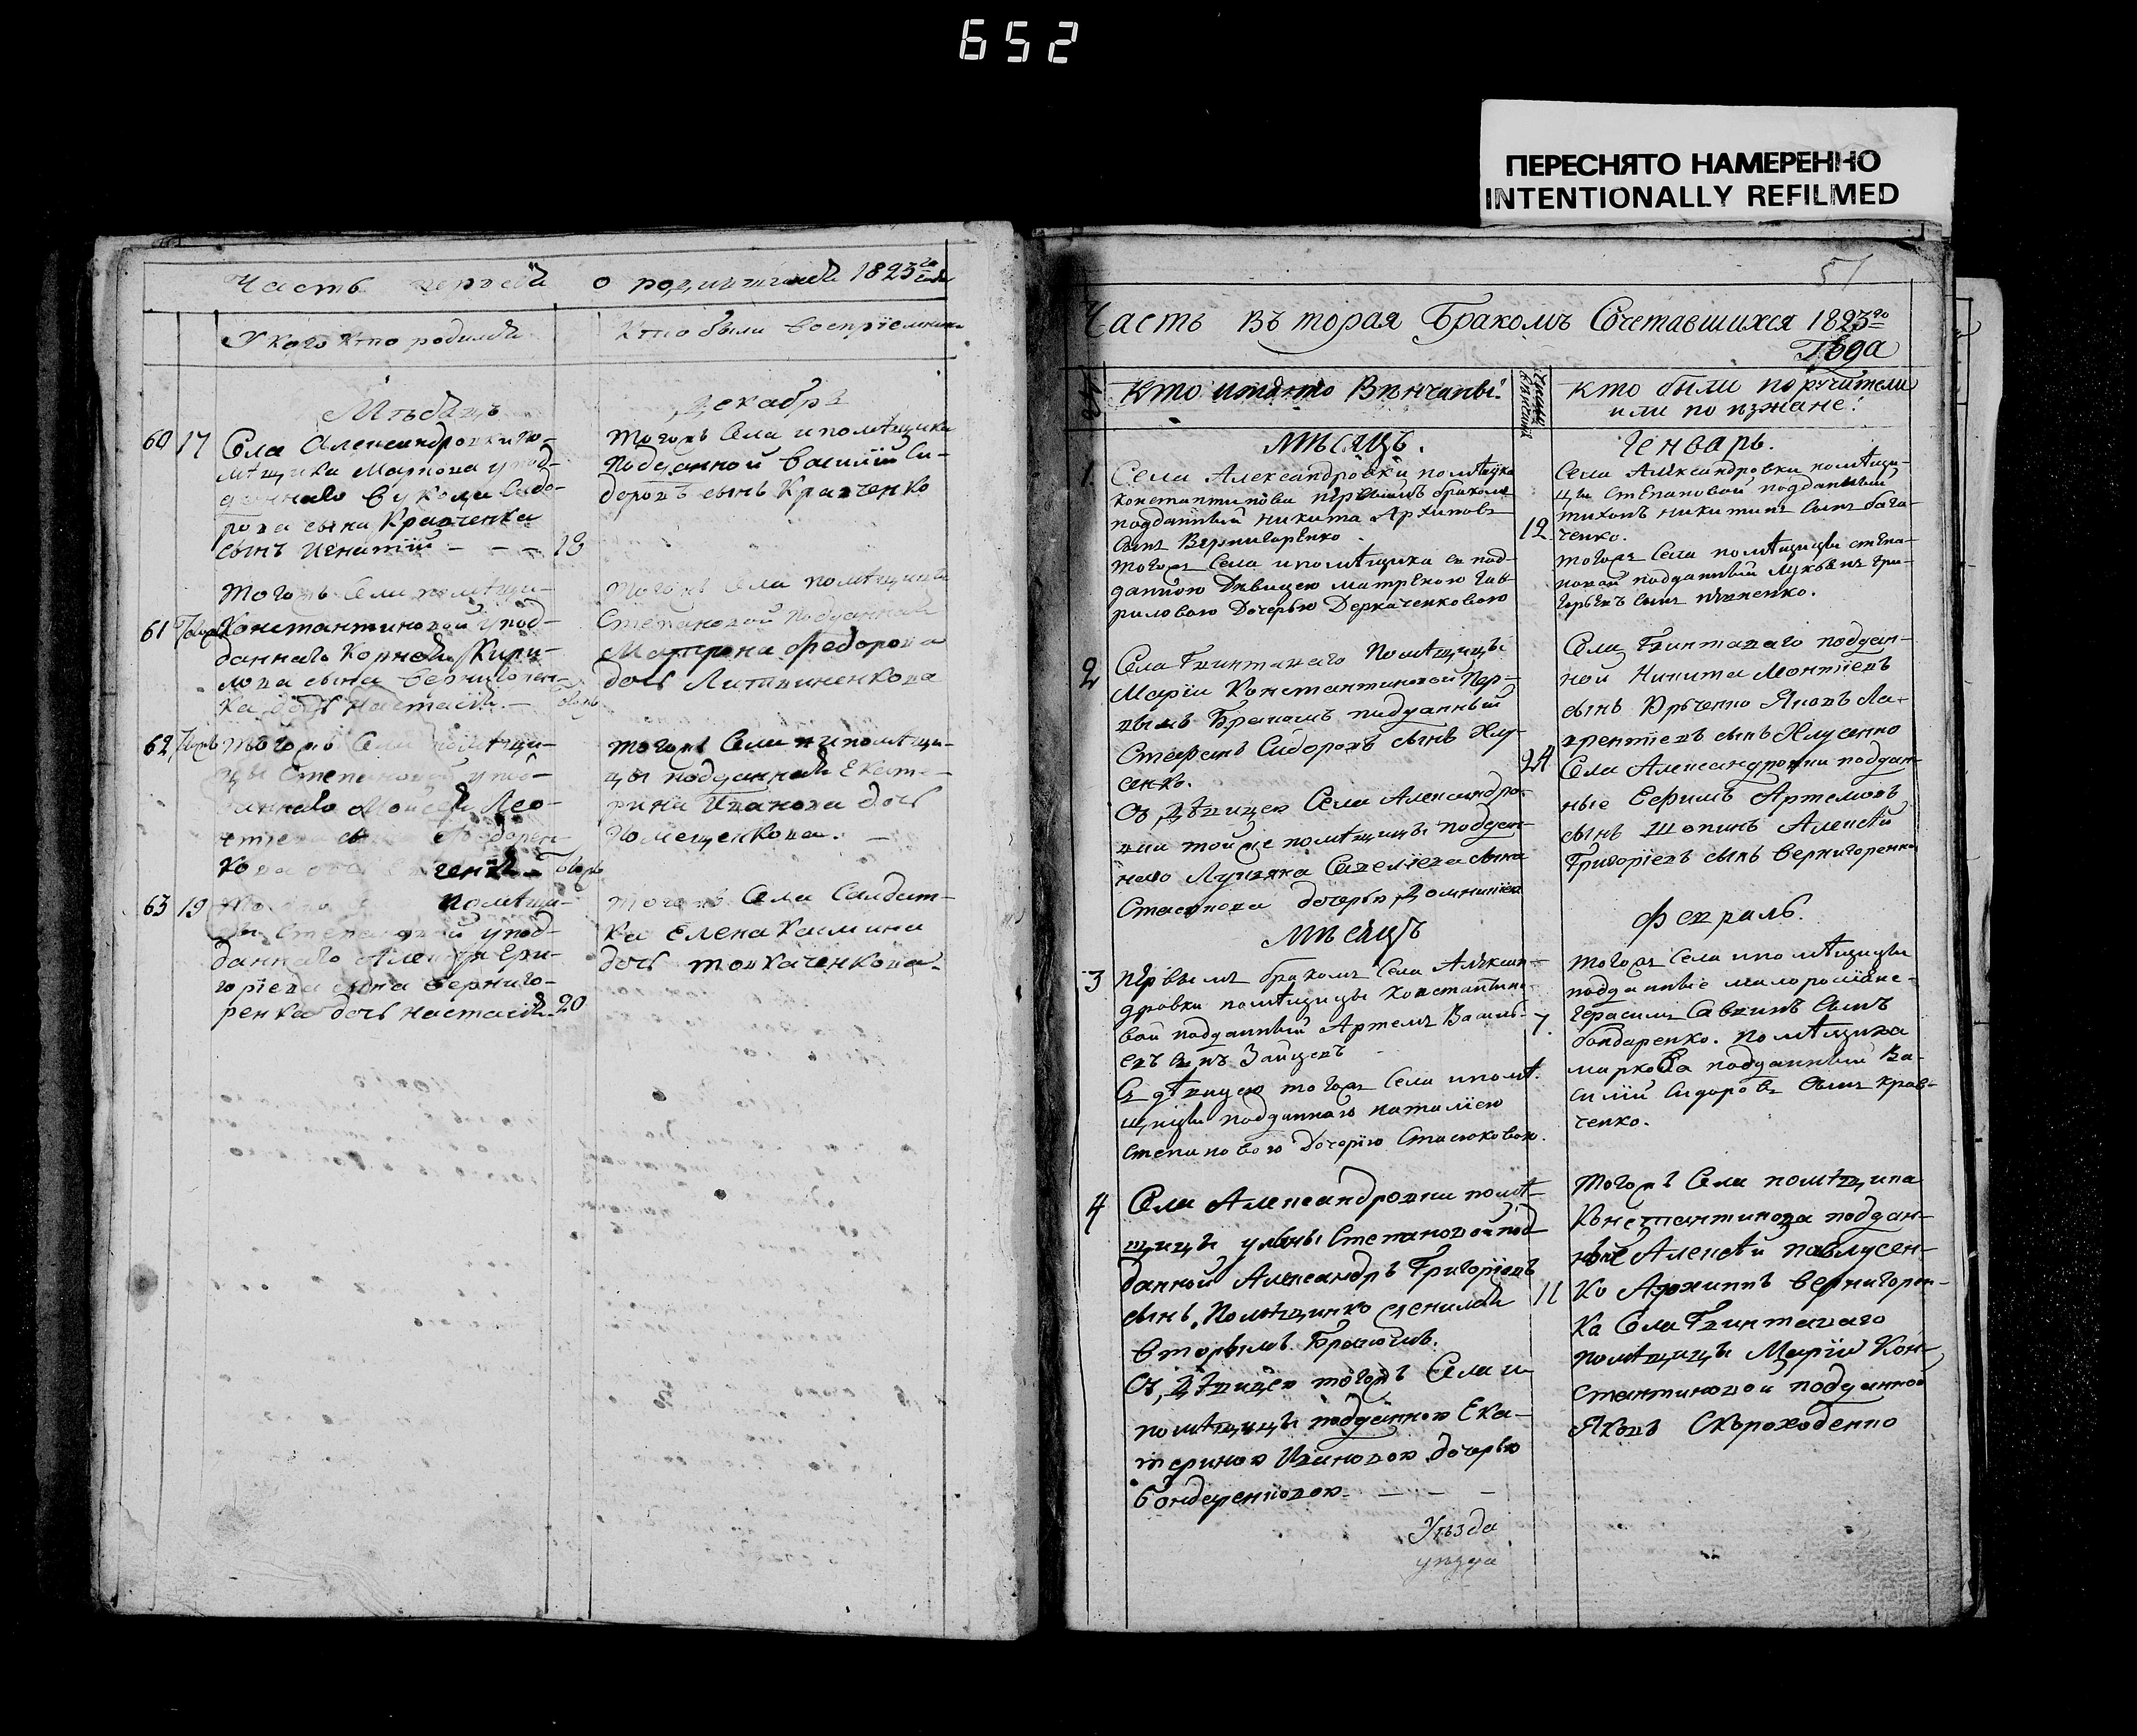 652
ПЕРЕСНЯТО НАМЕРЕННО
INTENTIONALLY REFILMED
Часть первая о родившихся 1823го года
У кого кто родился
Кто были восприемники
Мѣсяцъ
Декабрь
60 17 Села Александровки по-
мѣщика Маркова у под-
даннаго Вукола Сидо-
рова сына Кравченка
сынъ Игнатій - - - 18
тогожъ Села и помѣщика
подданной Василій Си-
доровъ сынъ Кравченко
тогожъ Села помѣщи-
61 Константиновой у под-
даннаго Корнея Кири-
лова сына Вернигорен-
ка дочь Настасія -
тогожъ Села помѣщицы
Степановой подданная
Матрона Федорова
дочь Литвиненкова
62 тогожъ Села помѣщи-
цы Степановой у под-
даннаго Мойсея Лео-
Федорен-
кова
тогожъ Села и помѣщи-
цы подданная Екате-
рина Иванова дочь
Помещенкова. -
63 19 помѣщи-
цы Степановой у под-
даннаго Алексея Гри-
горіева сына Верниго-
ренка дочь Настасія 20
тогожъ Села Салдат-
ка Елена Касмина
дочь Товкаченкова.
51
Часть Вторая Бракомъ Сочетавшихся 1823го
Года
Кто именно Вѣнчаны.
Кто были поручители
или поизжане.
Мѣсяцъ.
Генварь.
1. Села Александровки помѣщика
Константинова первымъ бракомъ
подданный Никита Архиповъ
сынъ Вернигоренко
тогожъ Села и помѣщика съ под-
данною Дѣвицею Матреною Гав-
риловою Дочерью Деркаченковою
12
Села Александровки помѣщи-
цы Степановой подданный
тихонъ Никитинъ сынъ бага-
ченко.
тогожъ Села помѣщицы степа-
новой подданный Лукьянъ Гри-
горьевъ сынъ
2 Села Гвинтоваго Помѣщицы
Маріи Константиновой Пер-
вымъ Бракомъ подданный
Стефанъ Сидоровъ сынъ Клу-
сенко.
Съ Дѣвицею Села Александро-
вки той же помѣщицы поддан-
наго Лукьяна Савеліева сына
Стасюкова дочерью Домникіею
24
Села Гвинтоваго поддан-
ной Никита Леонтіевъ
сынъ Юрченко Яковъ Ла-
врентіевъ сынъ Клусенко
Села Александровки поддан-
ные Ефимъ Артемовъ
сынъ Шопинъ Алексѣй
Григоріевъ сынъ Вернигоренко
Мѣсяцъ
Февраль.
3 Первымъ бракомъ Села Алексан-
дровки помѣщицы Константино-
вой подданный Артемъ Василь-
евъ сынъ Зайцевъ
Съ дѣвицею тогожъ Села и помѣ-
щицы подданнаго Наталіею
Степановою Дочерію Стасюковою.
7.
тогожъ Села и помѣщицы
подданные малороссіяне-
Герасимъ Саввинъ Сынъ
бондаренко. помѣщика
маркова подданный Ва-
силій Сидоровъ Сынъ Крав-
ченко.
4 Села Александровки помѣ-
щицы Ульяны Степановой под-
данной Александръ Григоріевъ
сынъ Помѣщинко женился
вторымъ Бракомъ.
Съ Дѣвицею тогожъ Села и
помѣщицы подданною Ека-
териною Ивановою дочерью
Бондаренковою - - -
11
тогожъ Села помѣщика
Константинова поддан-
ные Алексѣй Павлусен-
ко Архипъ Вернигорен-
ко Села Гвинтоваго
помѣщицы Маріи Кон-
стантиновой подданной
Яковъ Скороходенко
Уѣзда
уѣзда